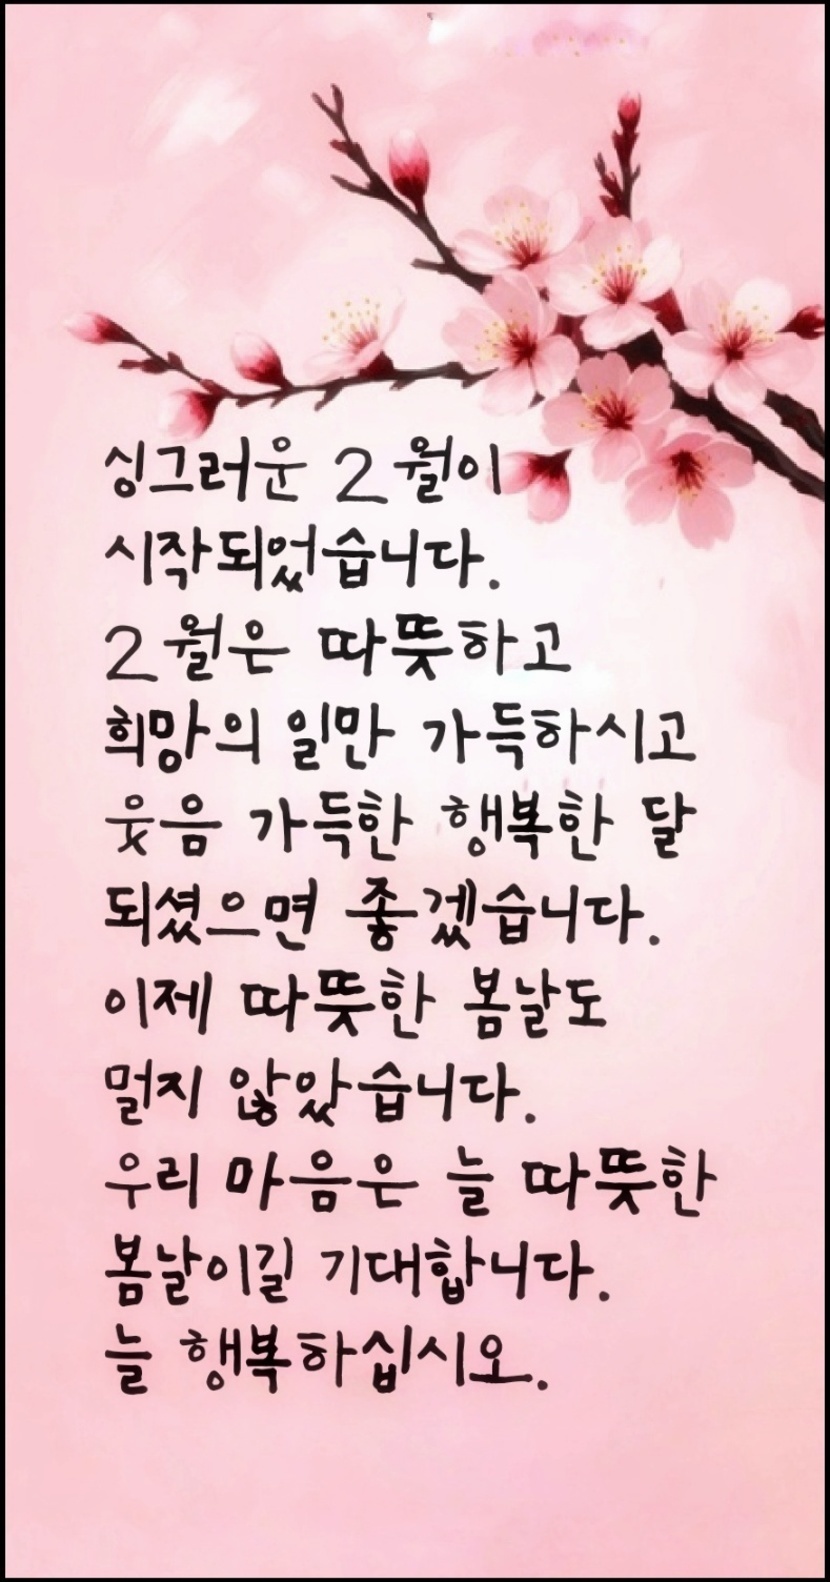 싱그러운 2월이
시작되었습니다.
2월은 따뜻하고
희망의 일만 가득하시고
웃음 가득한 행복한 달
되셨으면 좋겠습니다.
이제 따뜻한 봄날도
멀지 않았습니다.
우리 마음은 늘 따뜻한
봄날이길 기대합니다.
늘 행복하십시오.